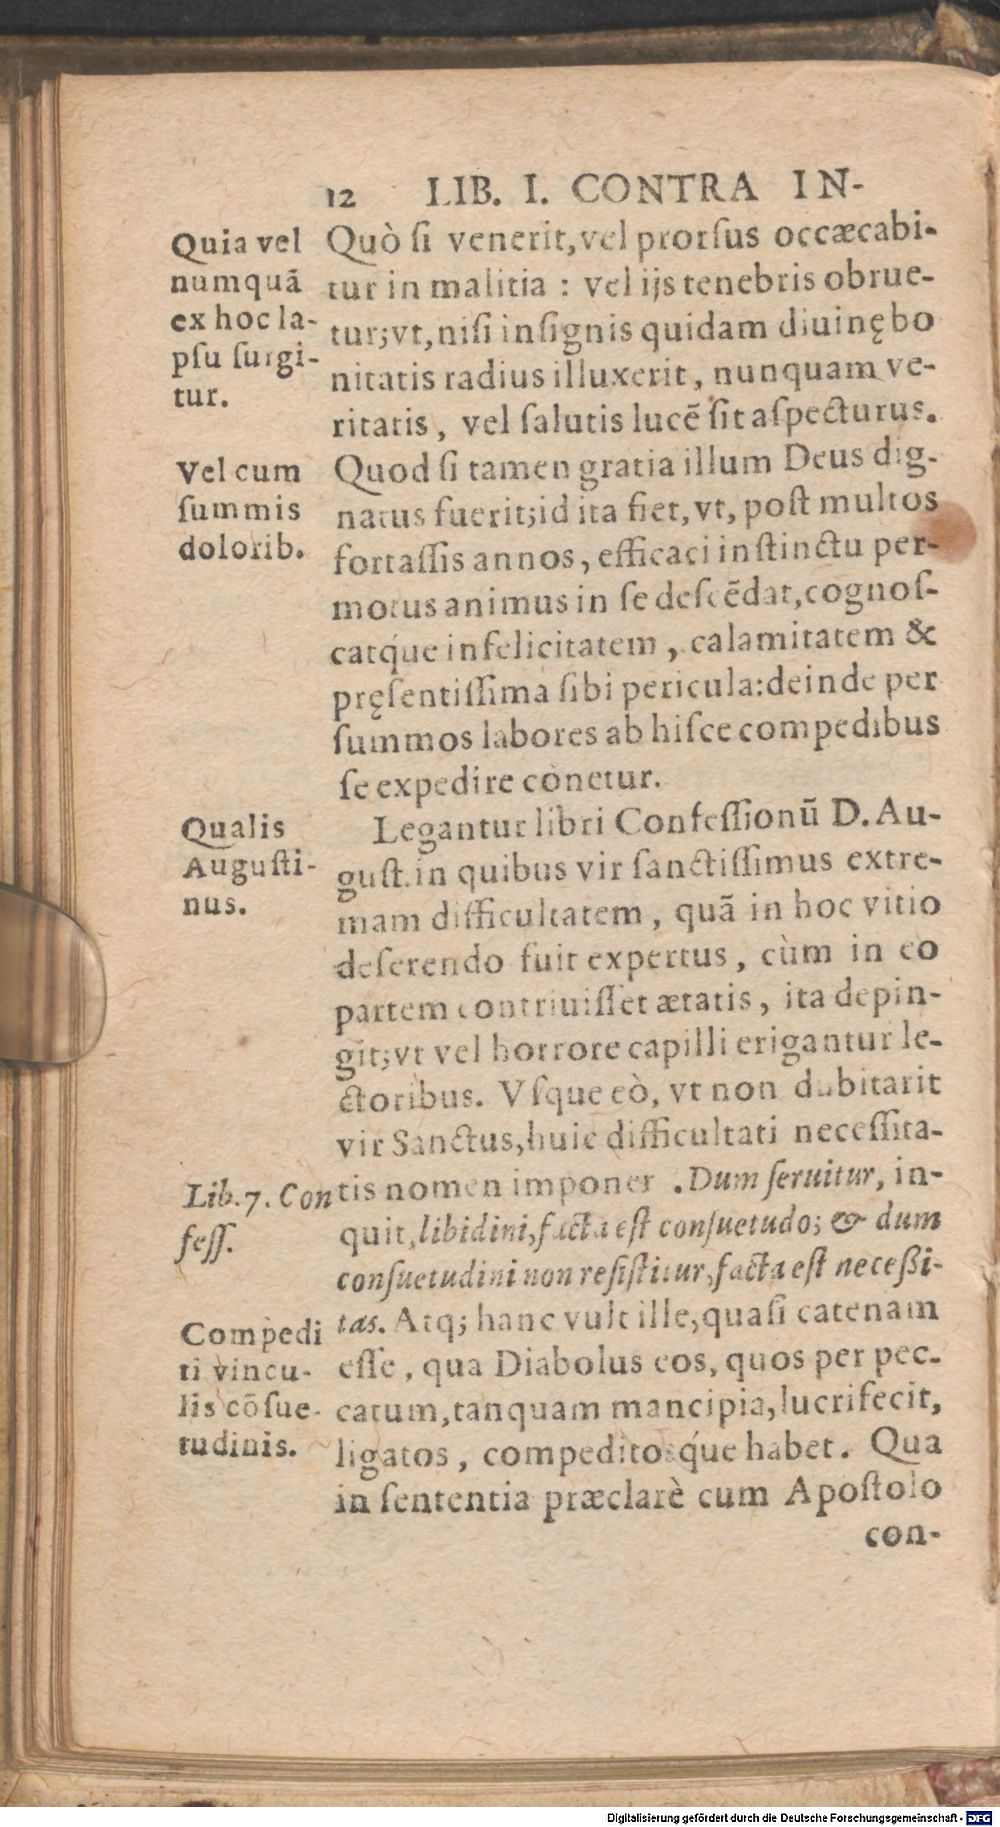 12 LIB. I. CONTRA IN-
Quia vel
numquã
ex hoc la-
pſu ſurgi-
tur.
Quò ſi venerit, vel prorſus occæcabi-
tur in malitia : vel ijs tenebris obrue-
tur; vt, niſi inſignis quidam diuinę bo
nitatis radius illuxerit, nunquam ve-
ritatis, vel ſalutis lucẽ ſit aſpecturus.
Vel cum
ſummis
dolorib.
Quod ſi tamen gratia illum Deus dig-
natus fuerit; id ita fiet, vt, poſt multos
fortaſſis annos, efficaci inſtinctu per-
motus animus in ſe deſcẽdat, cognoſ-
catq́ue infelicitatem, calamitatem &
pręſentiſſima ſibi pericula: deinde per
ſummos labores ab hiſce compedibus
ſe expedire conetur.
Qualis
Auguſti-
nus.
Legantur libri Confeſſionũ D. Au-
guſt. in quibus vir ſanctiſſimus extre-
mam difficultatem, quã in hoc vitio
deſerendo fuit expertus, cùm in eo
partem contriuiſſet ætatis, ita depin-
git; vt vel horrore capilli erigantur le-
ctoribus. Vſque eò, vt non dubitarit
vir Sanctus, huic difficultati neceſſita-
Lib. 7. Con
feſſ.
tis nomen imponer . Dum ſeruitur, in-
quit, libidini, facta eſt conſuetudo; & dum
conſuetudini non reſiſtitur, facta eſt neceßi-
tas. Atq; hanc vult ille, quaſi catenam
Compedi
ti vincu-
lis cõſue-
tudinis.
eſſe, qua Diabolus eos, quos per pec-
catum, tanquam mancipia, lucrifecit,
ligatos, compeditosq́ue habet. Qua
in ſententia præclarè cum Apoſtolo
con-
Digitalisierung gefördert durch die Deutsche Forschungsgemeinschaft - DFG